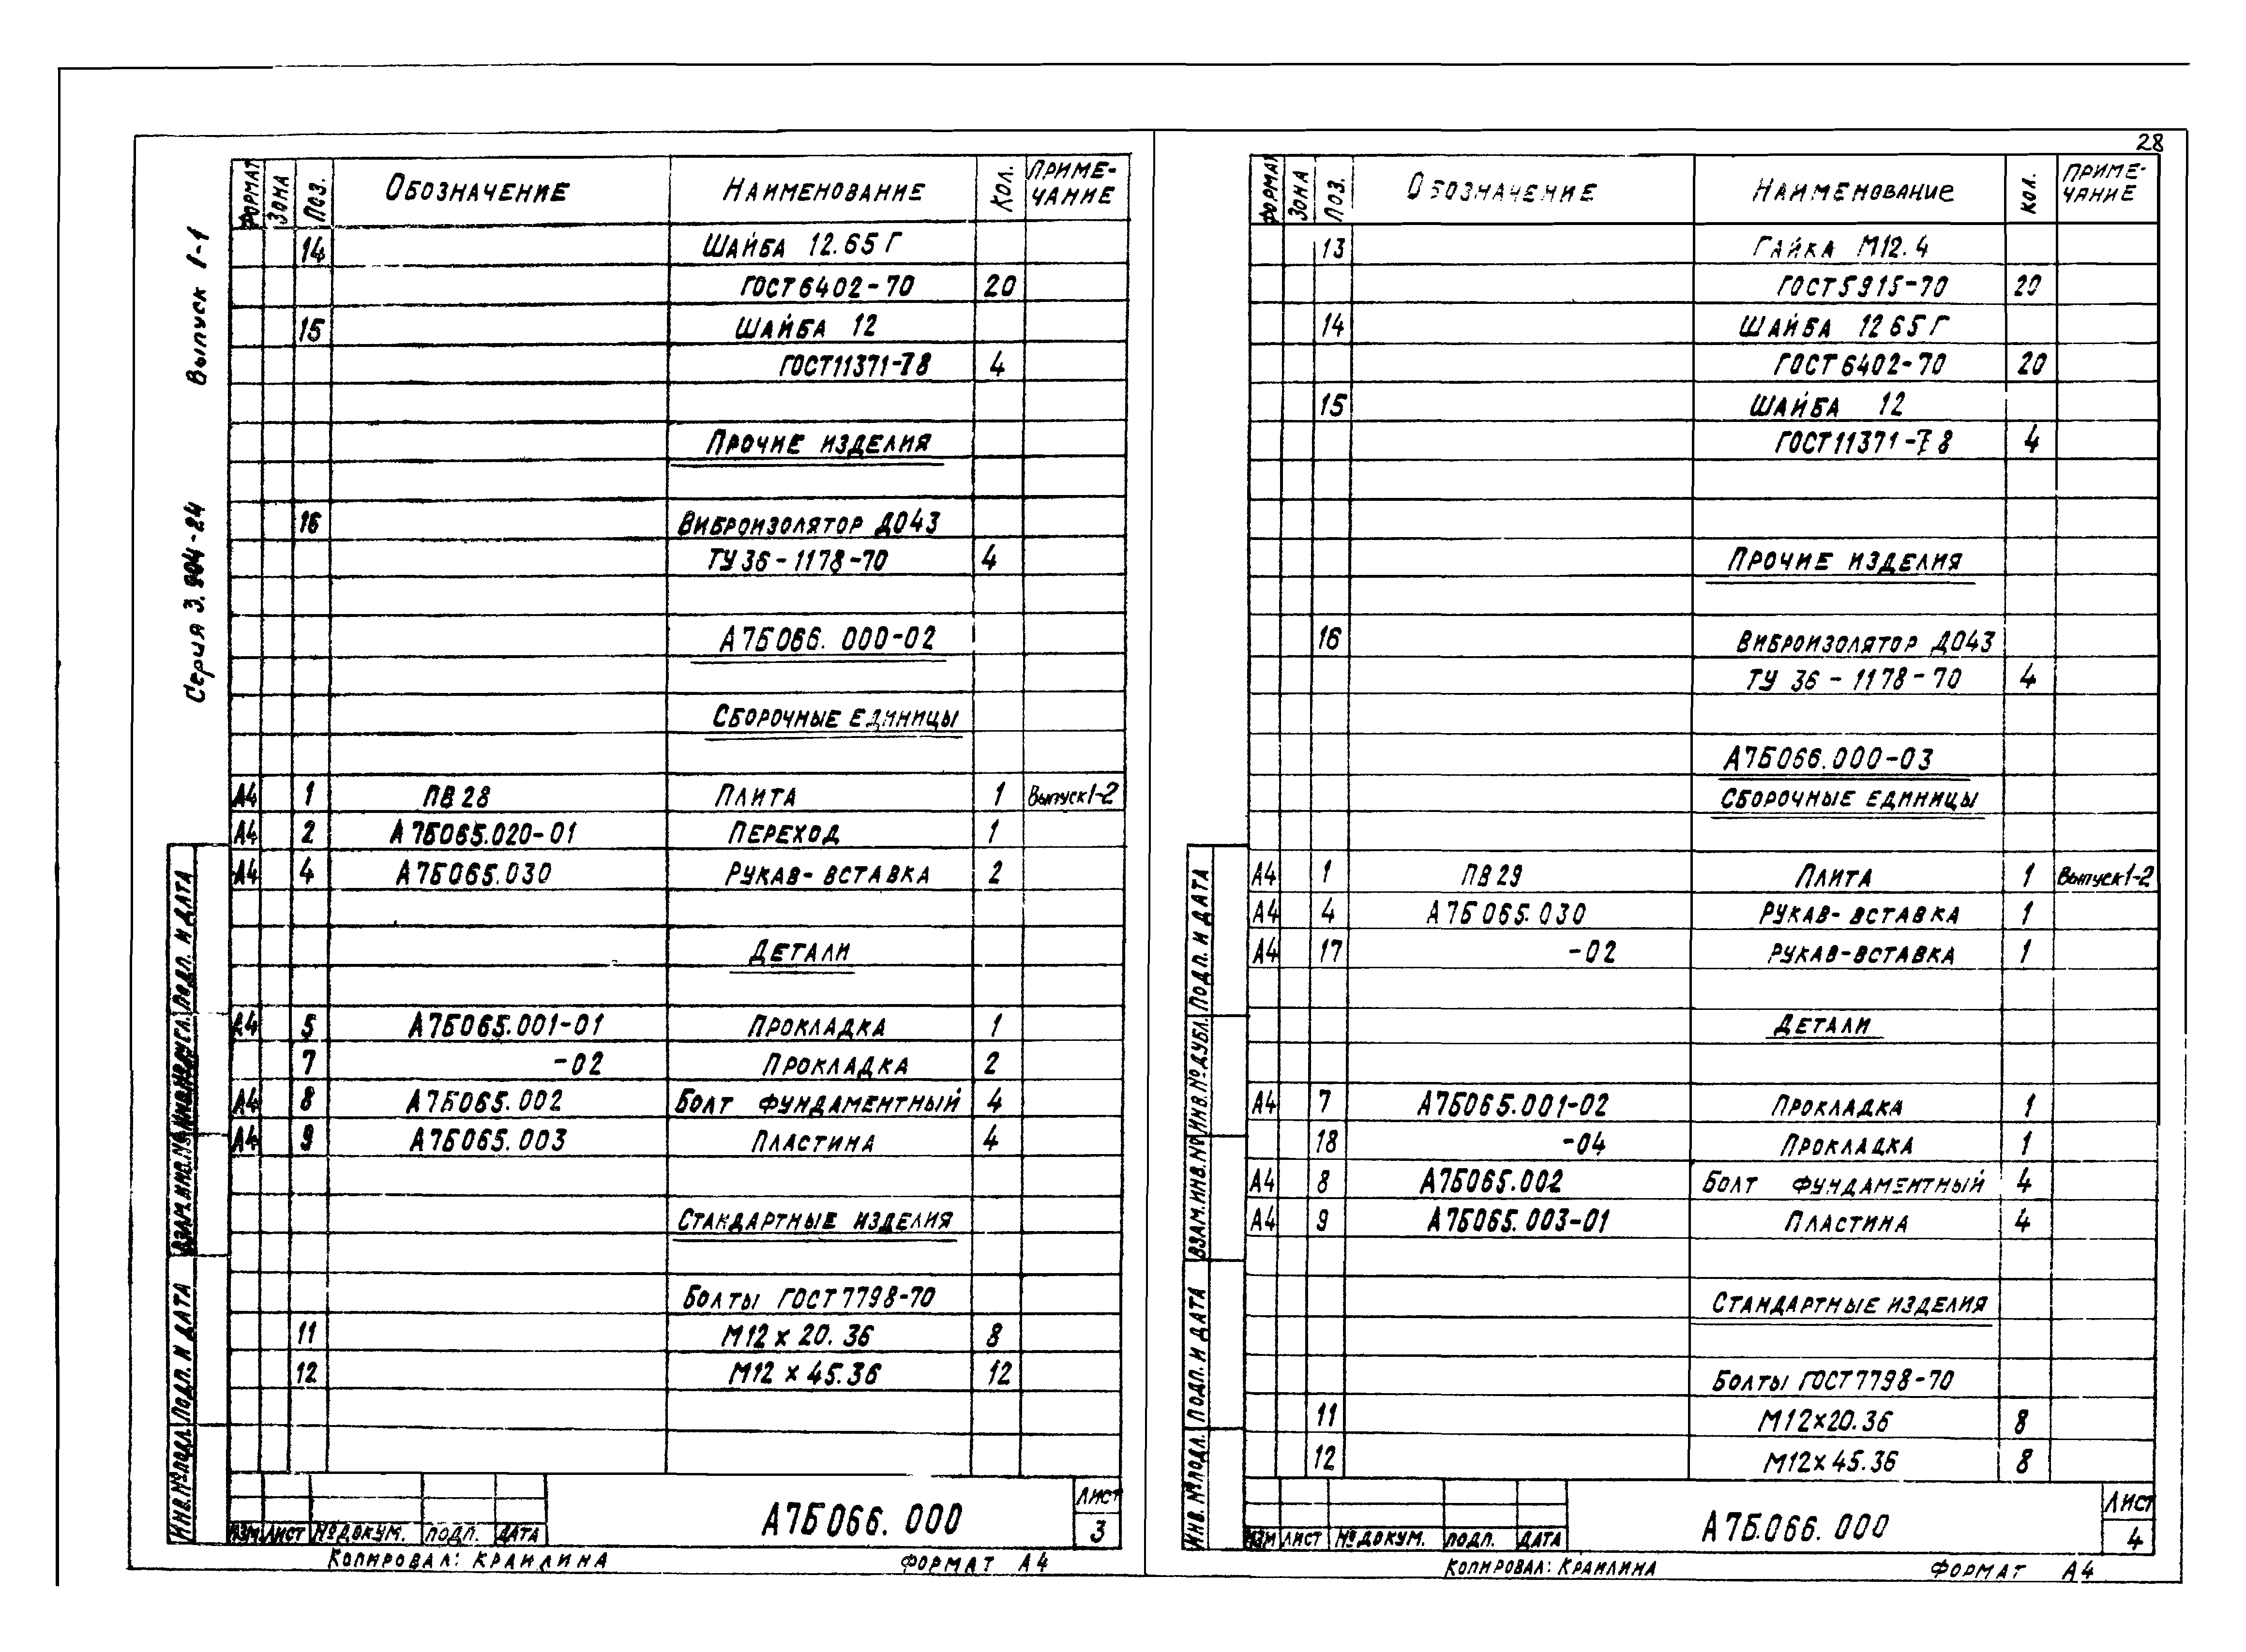 28
Серия 3.904-24 Выпуск 1-1
ФОРМАТ ЗОНА ПОЗ. ОБОЗНАЧЕНИЕ НАИМЕНОВАНИЕ КОЛ. ПРИМЕ-
ЧАНИЕ
14 ШАЙБА 12.65Г
ГОСТ6402-70 20
15 ШАЙБА 12
ГОСТ11371-78 4
ПРОЧИЕ ИЗДЕЛИЯ
16 ВИБРОИЗОЛЯТОР ДО43
ТУ 36-1178-70 4
А7Б066.000-02
СБОРОЧНЫЕ ЕДИНИЦЫ
А4 1 ПВ28 ПЛИТА 1 Выпуск1-2
А4 2 А7Б065.020-01 ПЕРЕХОД 1
А4 4 А7Б065.030 РУКАВ-ВСТАВКА 2
ДЕТАЛИ
А4 5 А7Б065.001-01 ПРОКЛАДКА 1
7 -02 ПРОКЛАДКА 2
А4 8 А7Б065.002 БОЛТ ФУНДАМЕНТНЫЙ 4
А4 9 А7Б065.003 ПЛАСТИНА 4
СТАНДАРТНЫЕ ИЗДЕЛИЯ
БОЛТЫ ГОСТ7798-70
11 М12х20.36 8
12 М12х45.36 12
ИНВ.№ПОДЛ. ПОДП. И ДАТА ВЗАМ.ИНВ.№ ПОДП. И ДАТА
ИЗМ ЛИСТ №ДОКУМ. ПОДП. ДАТА
А7Б066.000
ЛИСТ
3
КОПИРОВАЛ: КРАИЛИНА ФОРМАТ А4
ФОРМАТ ЗОНА ПОЗ. ОБОЗНАЧЕНИЕ НАИМЕНОВАНИЕ КОЛ. ПРИМЕ-
ЧАНИЕ
13 ГАЙКА М12.4
ГОСТ5915-70 20
14 ШАЙБА 12 65Г
ГОСТ6402-70 20
15 ШАЙБА 12
ГОСТ11371-78 4
ПРОЧИЕ ИЗДЕЛИЯ
16 ВИБРОИЗОЛЯТОР ДО43
ТУ 36-1178-70 4
А7Б066.000-03
СБОРОЧНЫЕ ЕДИНИЦЫ
А4 1 ПВ29 ПЛИТА 1 Выпуск1-2
А4 4 А7Б065.030 РУКАВ-ВСТАВКА 1
А4 17 -02 РУКАВ-ВСТАВКА 1
ДЕТАЛИ
А4 7 А7Б065.001-02 ПРОКЛАДКА 1
18 -04 ПРОКЛАДКА 1
А4 8 А7Б065.002 БОЛТ ФУНДАМЕНТНЫЙ 4
А4 9 А7Б065.003-01 ПЛАСТИНА 4
СТАНДАРТНЫЕ ИЗДЕЛИЯ
БОЛТЫ ГОСТ7798-70
11 М12х20.36 8
12 М12х45.36 8
ИНВ.№ПОДЛ. ПОДП. И ДАТА ВЗАМ.ИНВ.№ ИНВ.№ДУБЛ. ПОДП. И ДАТА
ИЗМ ЛИСТ №ДОКУМ. ПОДП. ДАТА
А7Б.066.000
ЛИСТ
4
КОПИРОВАЛ: КРАИЛИНА ФОРМАТ А4